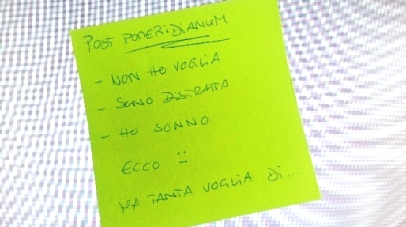 POST POMERIDIANUM
- NON HO VOGLIA
- SONO DISTRATA
- HO SONNO
ECCO :|
MA TANTA VOGLIA DI...